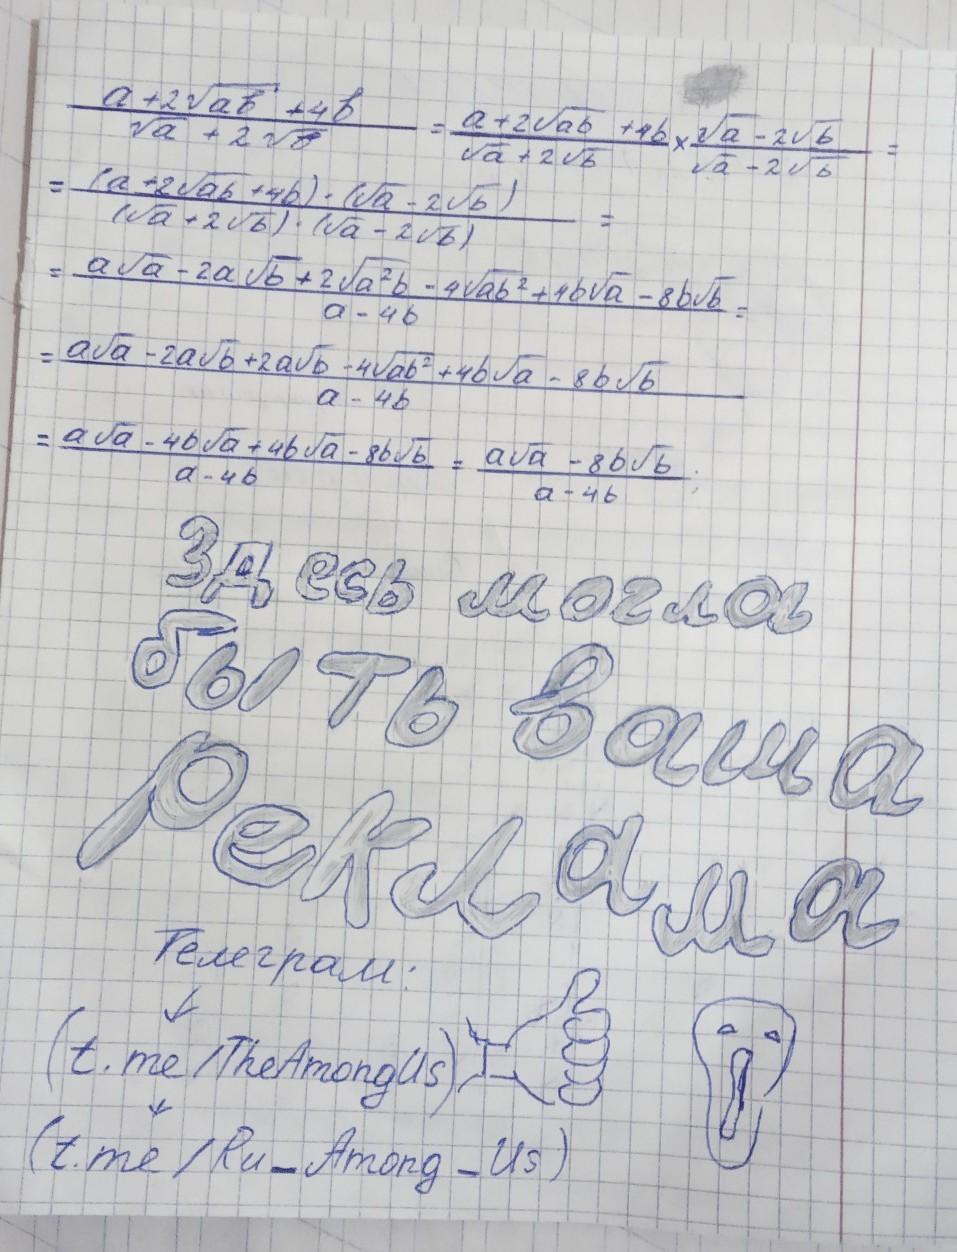 (a+2√ab+4b)/(√a+2√b) = (a+2√ab+4b)/(√a+2√b) × (√a-2√b)/(√a-2√b) =
= ((a+2√ab+4b)·(√a-2√b))/((√a+2√b)·(√a-2√b)) =
= (a√a-2a√b+2√a²b-4√ab²+4b√a-8b√b)/(a-4b) =
= (a√a-2a√b+2a√b-4√ab²+4b√a-8b√b)/(a-4b)
= (a√a-4b√a+4b√a-8b√b)/(a-4b) = (a√a-8b√b)/(a-4b);
Здесь могла
быть ваша
реклама
Телеграм:
(t.me/TheAmongUs)
(t.me/Ru_Among_Us)